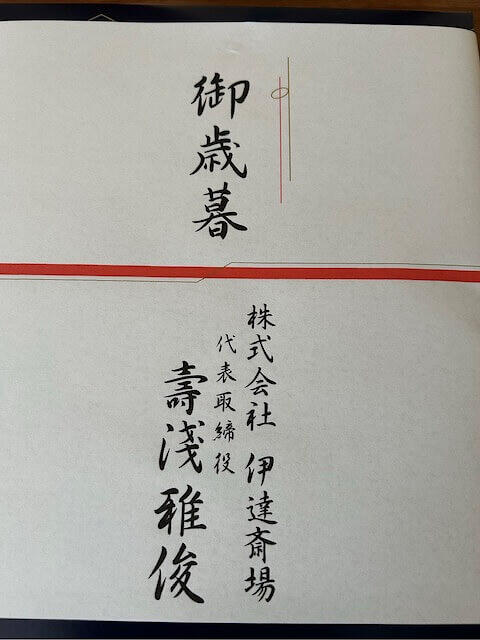 御歳暮
株式会社 伊達斎場
代表取締役
壽淺雅俊